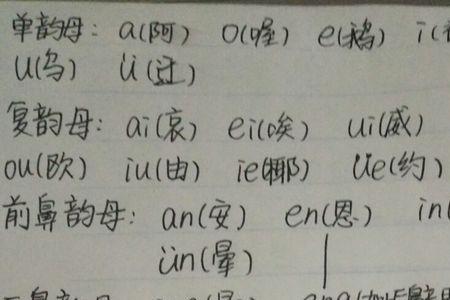 单韵母: a(阿) o(喔) e(鹅) i(
u(乌) ü(迂)
复韵母: ai(哀) ei(唉) ui(威)
ou(欧) iu(由) ie(椰) üe(约)
前鼻韵母: an(安) en(恩) in(
ün(晕)